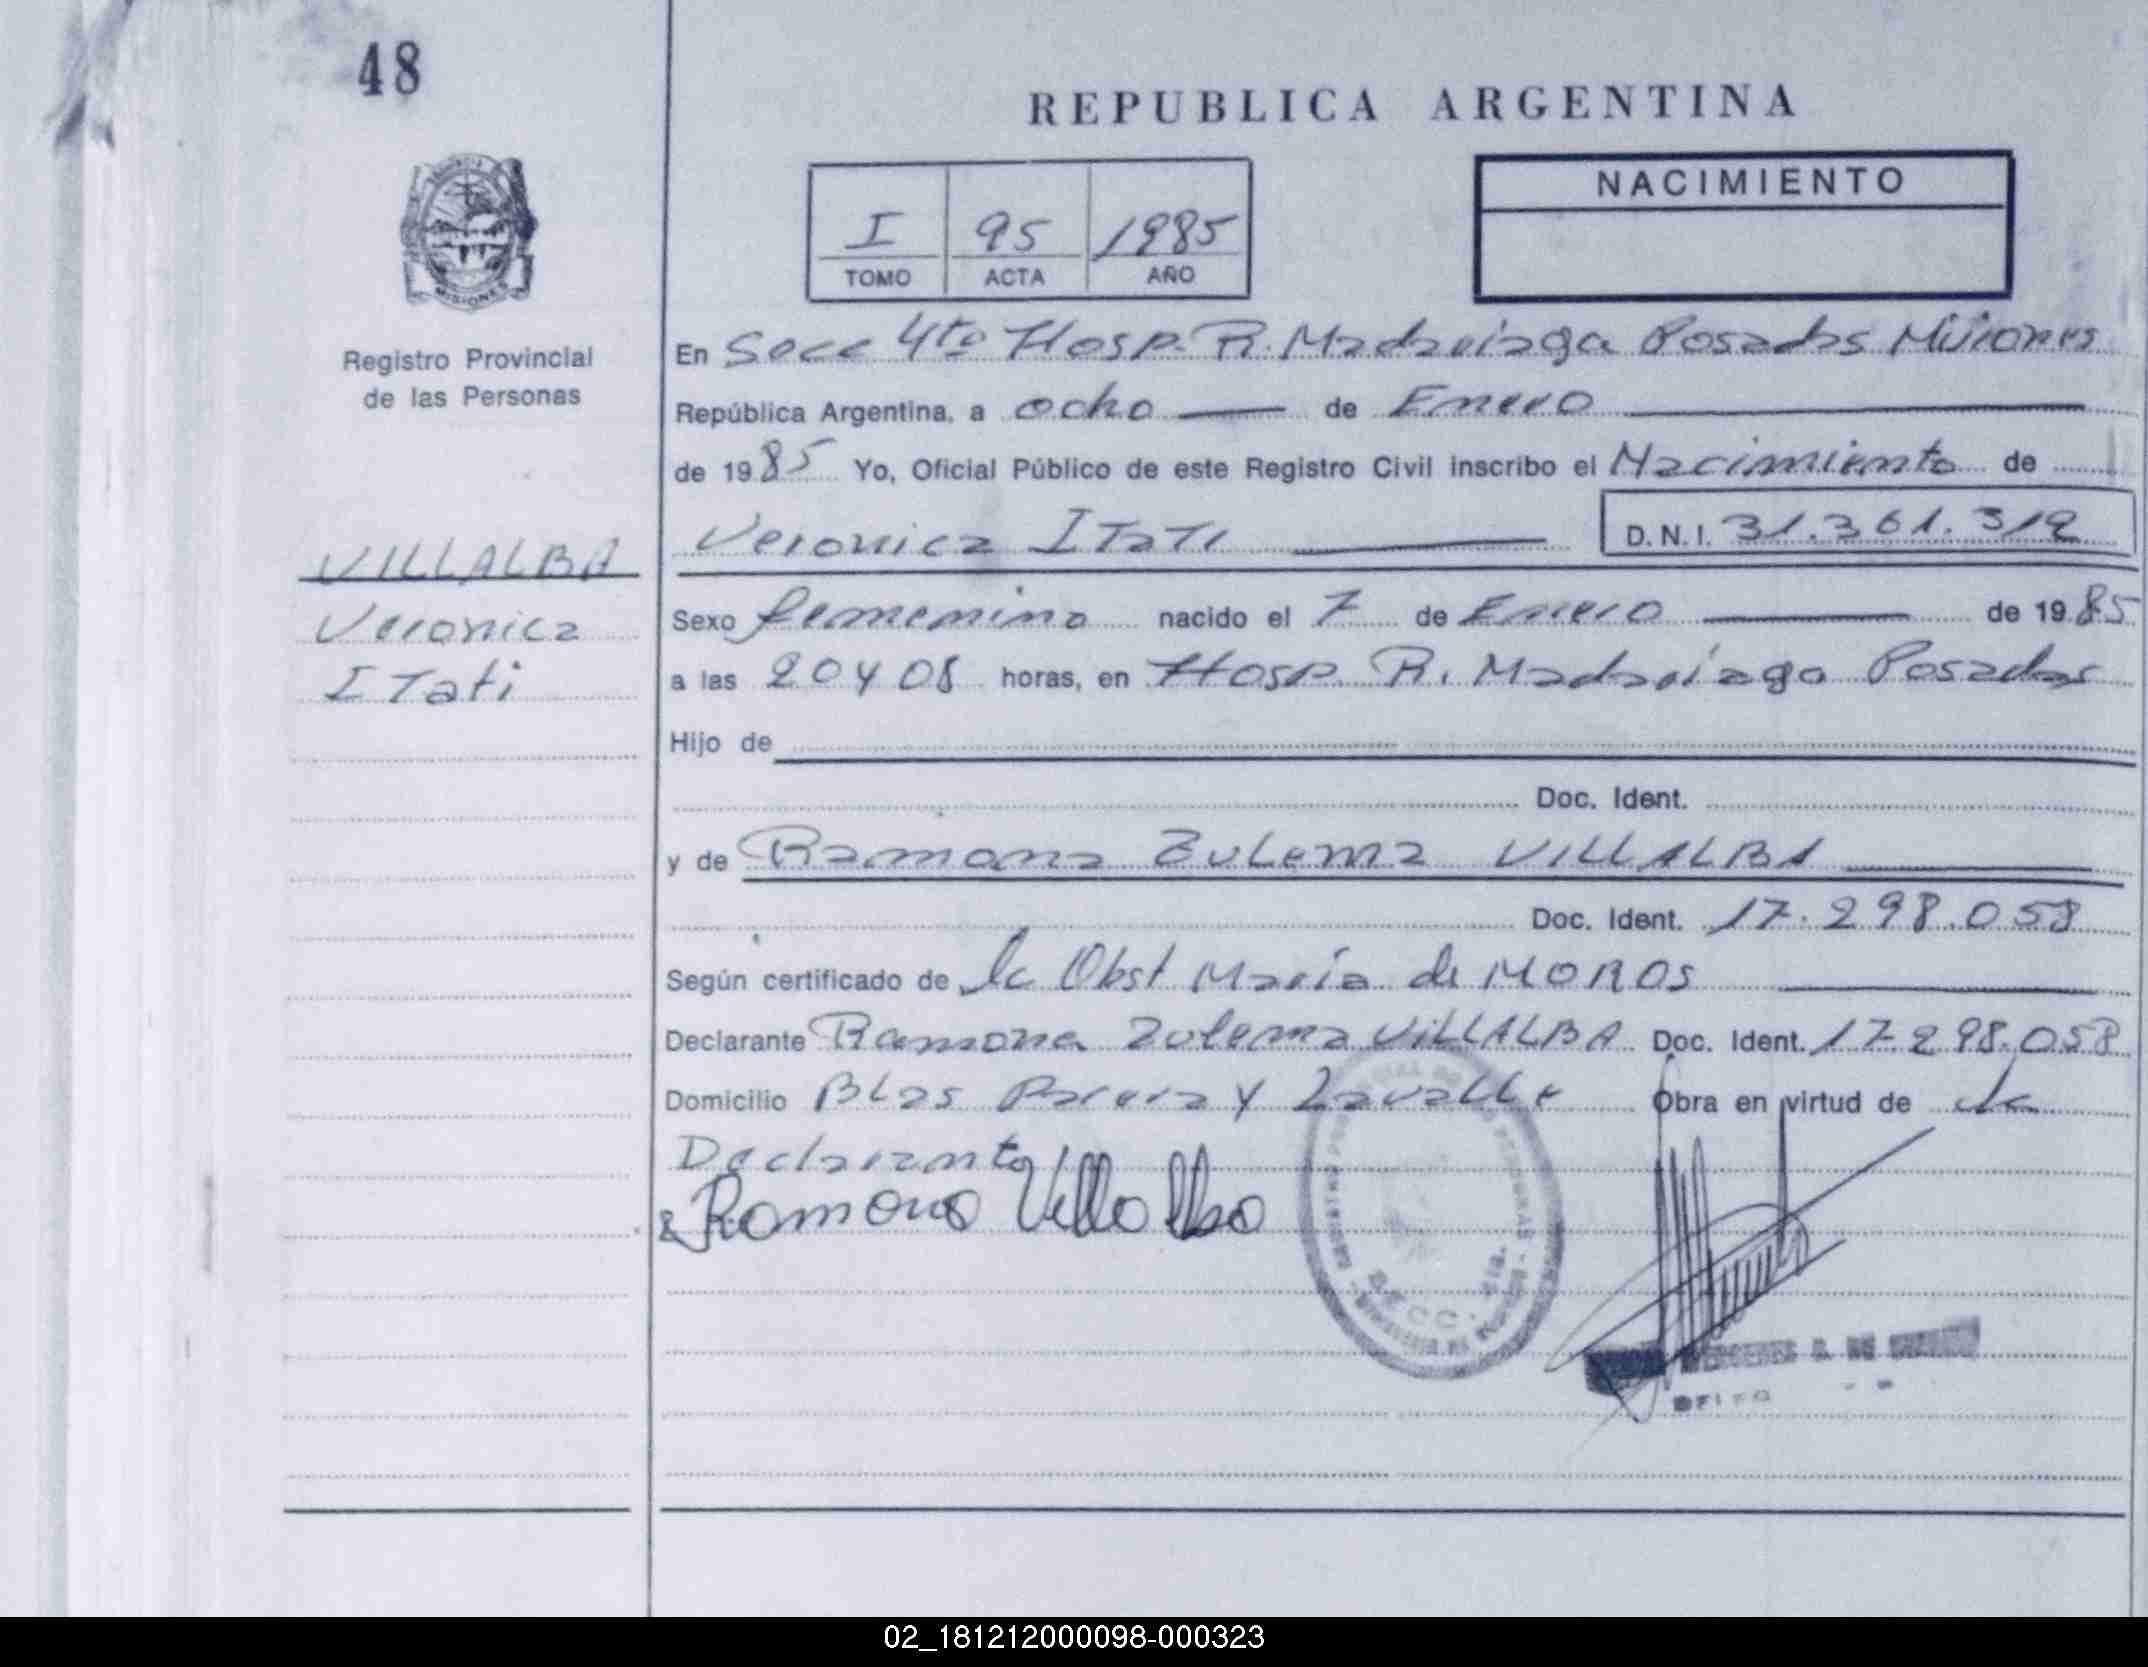 48
REPUBLICA ARGENTINA
NACIMIENTO
I 95 1985
TOMO ACTA AÑO
MISIONES
Registro Provincial
de las Personas
En Secc 4ta Hosp. R. Madariaga Posadas Misiones
República Argentina, a ocho de Enero
de 1985 Yo, Oficial Público de este Registro Civil inscribo el Nacimiento de
Veronica ITATI D.N.I. 31.361.312
VILLALBA
Veronica
ITati
Sexo femenino nacido el 7 de Enero de 1985
a las 20 y 08 horas, en Hosp. R. Madariaga Posadas
Hijo de
Doc. Ident.
y de Ramona Zulema VILLALBA
Doc. Ident. 17.298.058
Según certificado de la Obst Maria de MOROS
Declarante Ramona Zulema VILLALBA Doc. Ident. 17.298.058
Domicilio BLas Parera y Lavalle Obra en virtud de la
Declarante
Ramona Villalba
SECC. 4ta.
02_181212000098-000323